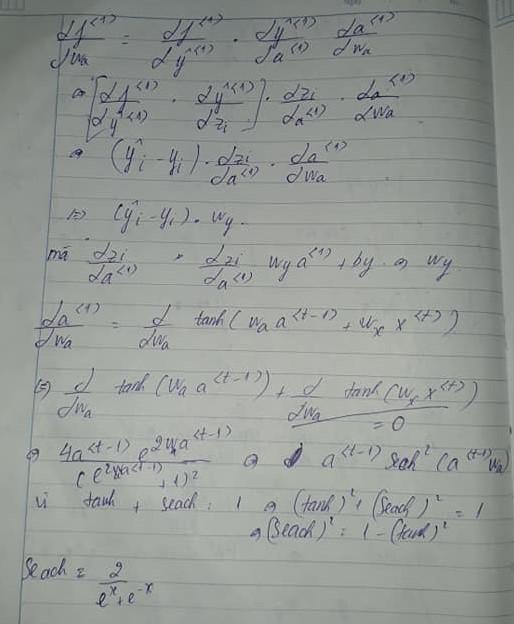 dJ^<1>/dWa = dJ^<1>/dŷ^<1> · dŷ^<1>/da^<1> · da^<1>/dWa
⇔ [dJ^<1>/dŷ^<1> · dŷ^<1>/dzi] · dzi/da^<1> · da^<1>/dWa
⇔ (ŷi - yi) · dzi/da^<1> · da^<1>/dWa
⇔ (ŷi - yi) · Wy.
mà dzi/da^<1> = dzi/da^<1> Wy a^<1> + by ⇔ Wy
da^<1>/dWa = d/dWa tanh(Wa a^<t-1> + Wx x^<t>)
⇔ d/dWa tanh(Wa a^<t-1>) + d/dWa tanh(Wx x^<t>) = 0
⇔ 4a^<t-1> e^2Wa a^<t-1> / (e^2Wa a^<t-1> + 1)² ⇔ a^<t-1> seah² (a^<t-1> Wa)
vì tanh + seach = 1 ⇔ (tanh)² + (seach)² = 1
⇔ (seach)² = 1 - (tanh)²
Seach = 2/(e^x + e^-x)